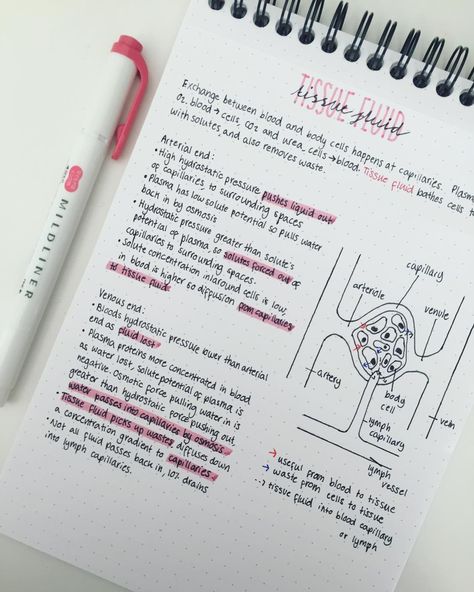 TISSUE FLUID
tissue fluid
Exchange between blood and body cells happens at capillaries.
O2 blood → cells, CO2 and urea cells → blood. Tissue fluid bathes cells
with solutes and also removes waste.
Arterial end:
• High hydrostatic pressure pushes liquid out
of capillaries to surrounding spaces
• Plasma has low solute potential so pulls water
back in by osmosis
• Hydrostatic pressure greater than solute
potential of plasma, so solutes forced out of
capillaries to surrounding spaces.
• Solute concentration in/around cells is low,
in blood is higher so diffusion from capillaries
to tissue fluid.
Venous end:
• Bloods hydrostatic pressure lower than arterial
end as fluid lost
• Plasma proteins more concentrated in blood
as water lost, solute potential of plasma is
negative. Osmotic force pulling water in is
greater than hydrostatic force pushing out,
water passes into capillaries by osmosis
• Tissue fluid picks up wastes, diffuses down
a concentration gradient to capillaries.
• Not all fluid passes back in, 10% drains
into lymph capillaries.
capillary
arteriole
venule
artery
body
cell
vein
lymph
capillary
lymph
vessel
→ useful from blood to tissue
→ waste from cells to tissue
⇢ tissue fluid into blood capillary
or lymph
MILDLINER